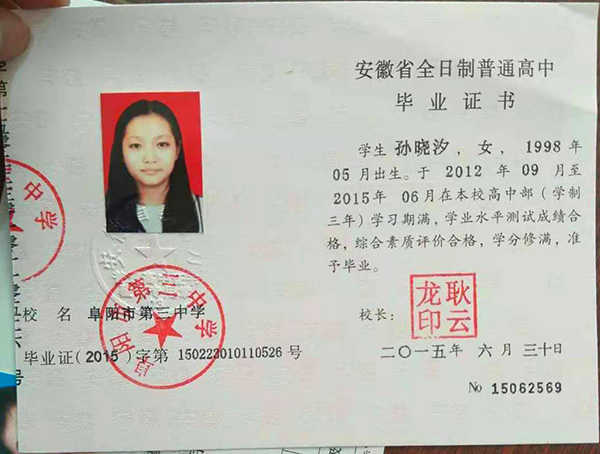 安徽省全日制普通高中
毕业证书
学生 孙晓汐 , 女, 1998 年
05 月出生。于 2012 年 09 月至
2015 年 06 月在本校高中部 (学制
三年) 学习期满, 学业水平测试成绩合
格, 综合素质评价合格, 学分修满, 准
予毕业。
校长:
耿云龙印
二〇一五年 六 月 三十日
No 15062569
中学
阜阳市第三中学
校 名 阜阳市第三中学
毕业证(2015)字第 150223010110526 号
号